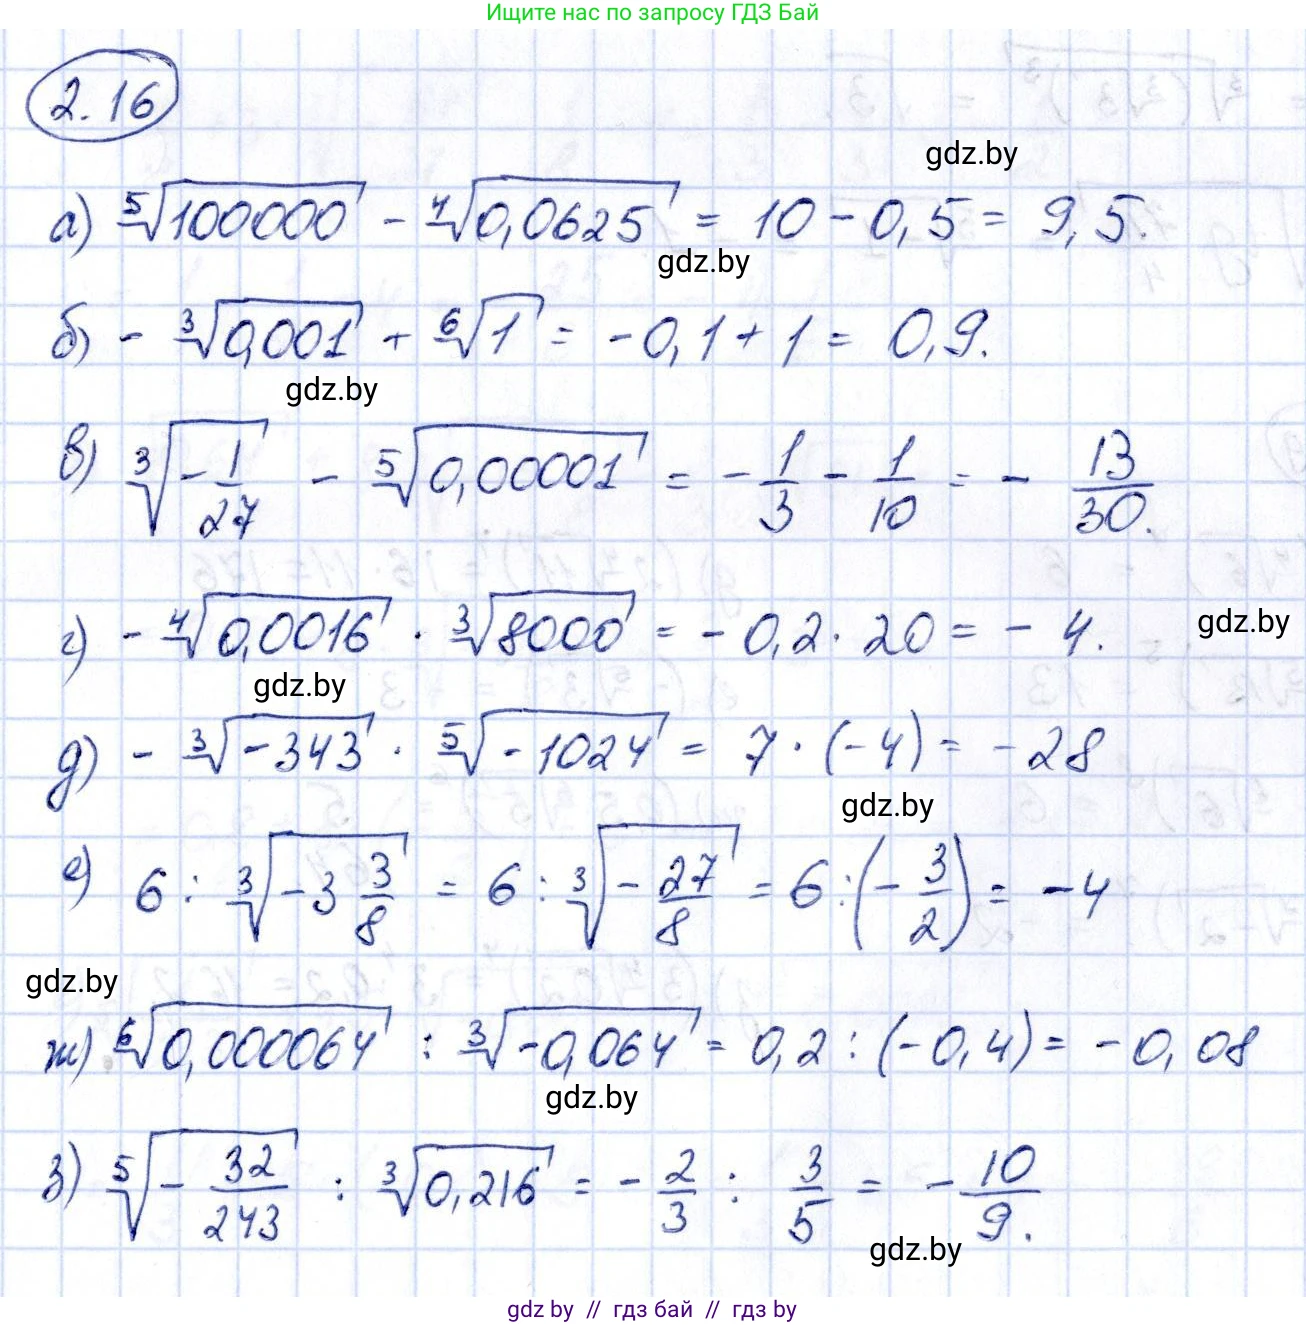 Ищите нас по запросу ГДЗ Бай
2.16
gdz.by
а) ⁵√100000 - ⁴√0,0625 = 10 - 0,5 = 9,5.
gdz.by
б) - ³√0,001 + ⁶√1 = -0,1 + 1 = 0,9.
gdz.by
в) ³√(-1/27) - ⁵√0,00001 = -1/3 - 1/10 = - 13/30.
г) - ⁴√0,0016 · ³√8000 = -0,2 · 20 = - 4.
gdz.by
gdz.by
д) - ³√-343 · ⁵√-1024 = 7 · (-4) = -28
gdz.by
е) 6 : ³√(-3 3/8) = 6 : ³√(-27/8) = 6 : (-3/2) = -4
gdz.by
ж) ⁶√0,000064 : ³√-0,064 = 0,2 : (-0,4) = -0,08
gdz.by
з) ⁵√(-32/243) : ³√0,216 = -2/3 : 3/5 = -10/9.
gdz.by
gdz by // гдз бай // гдз by